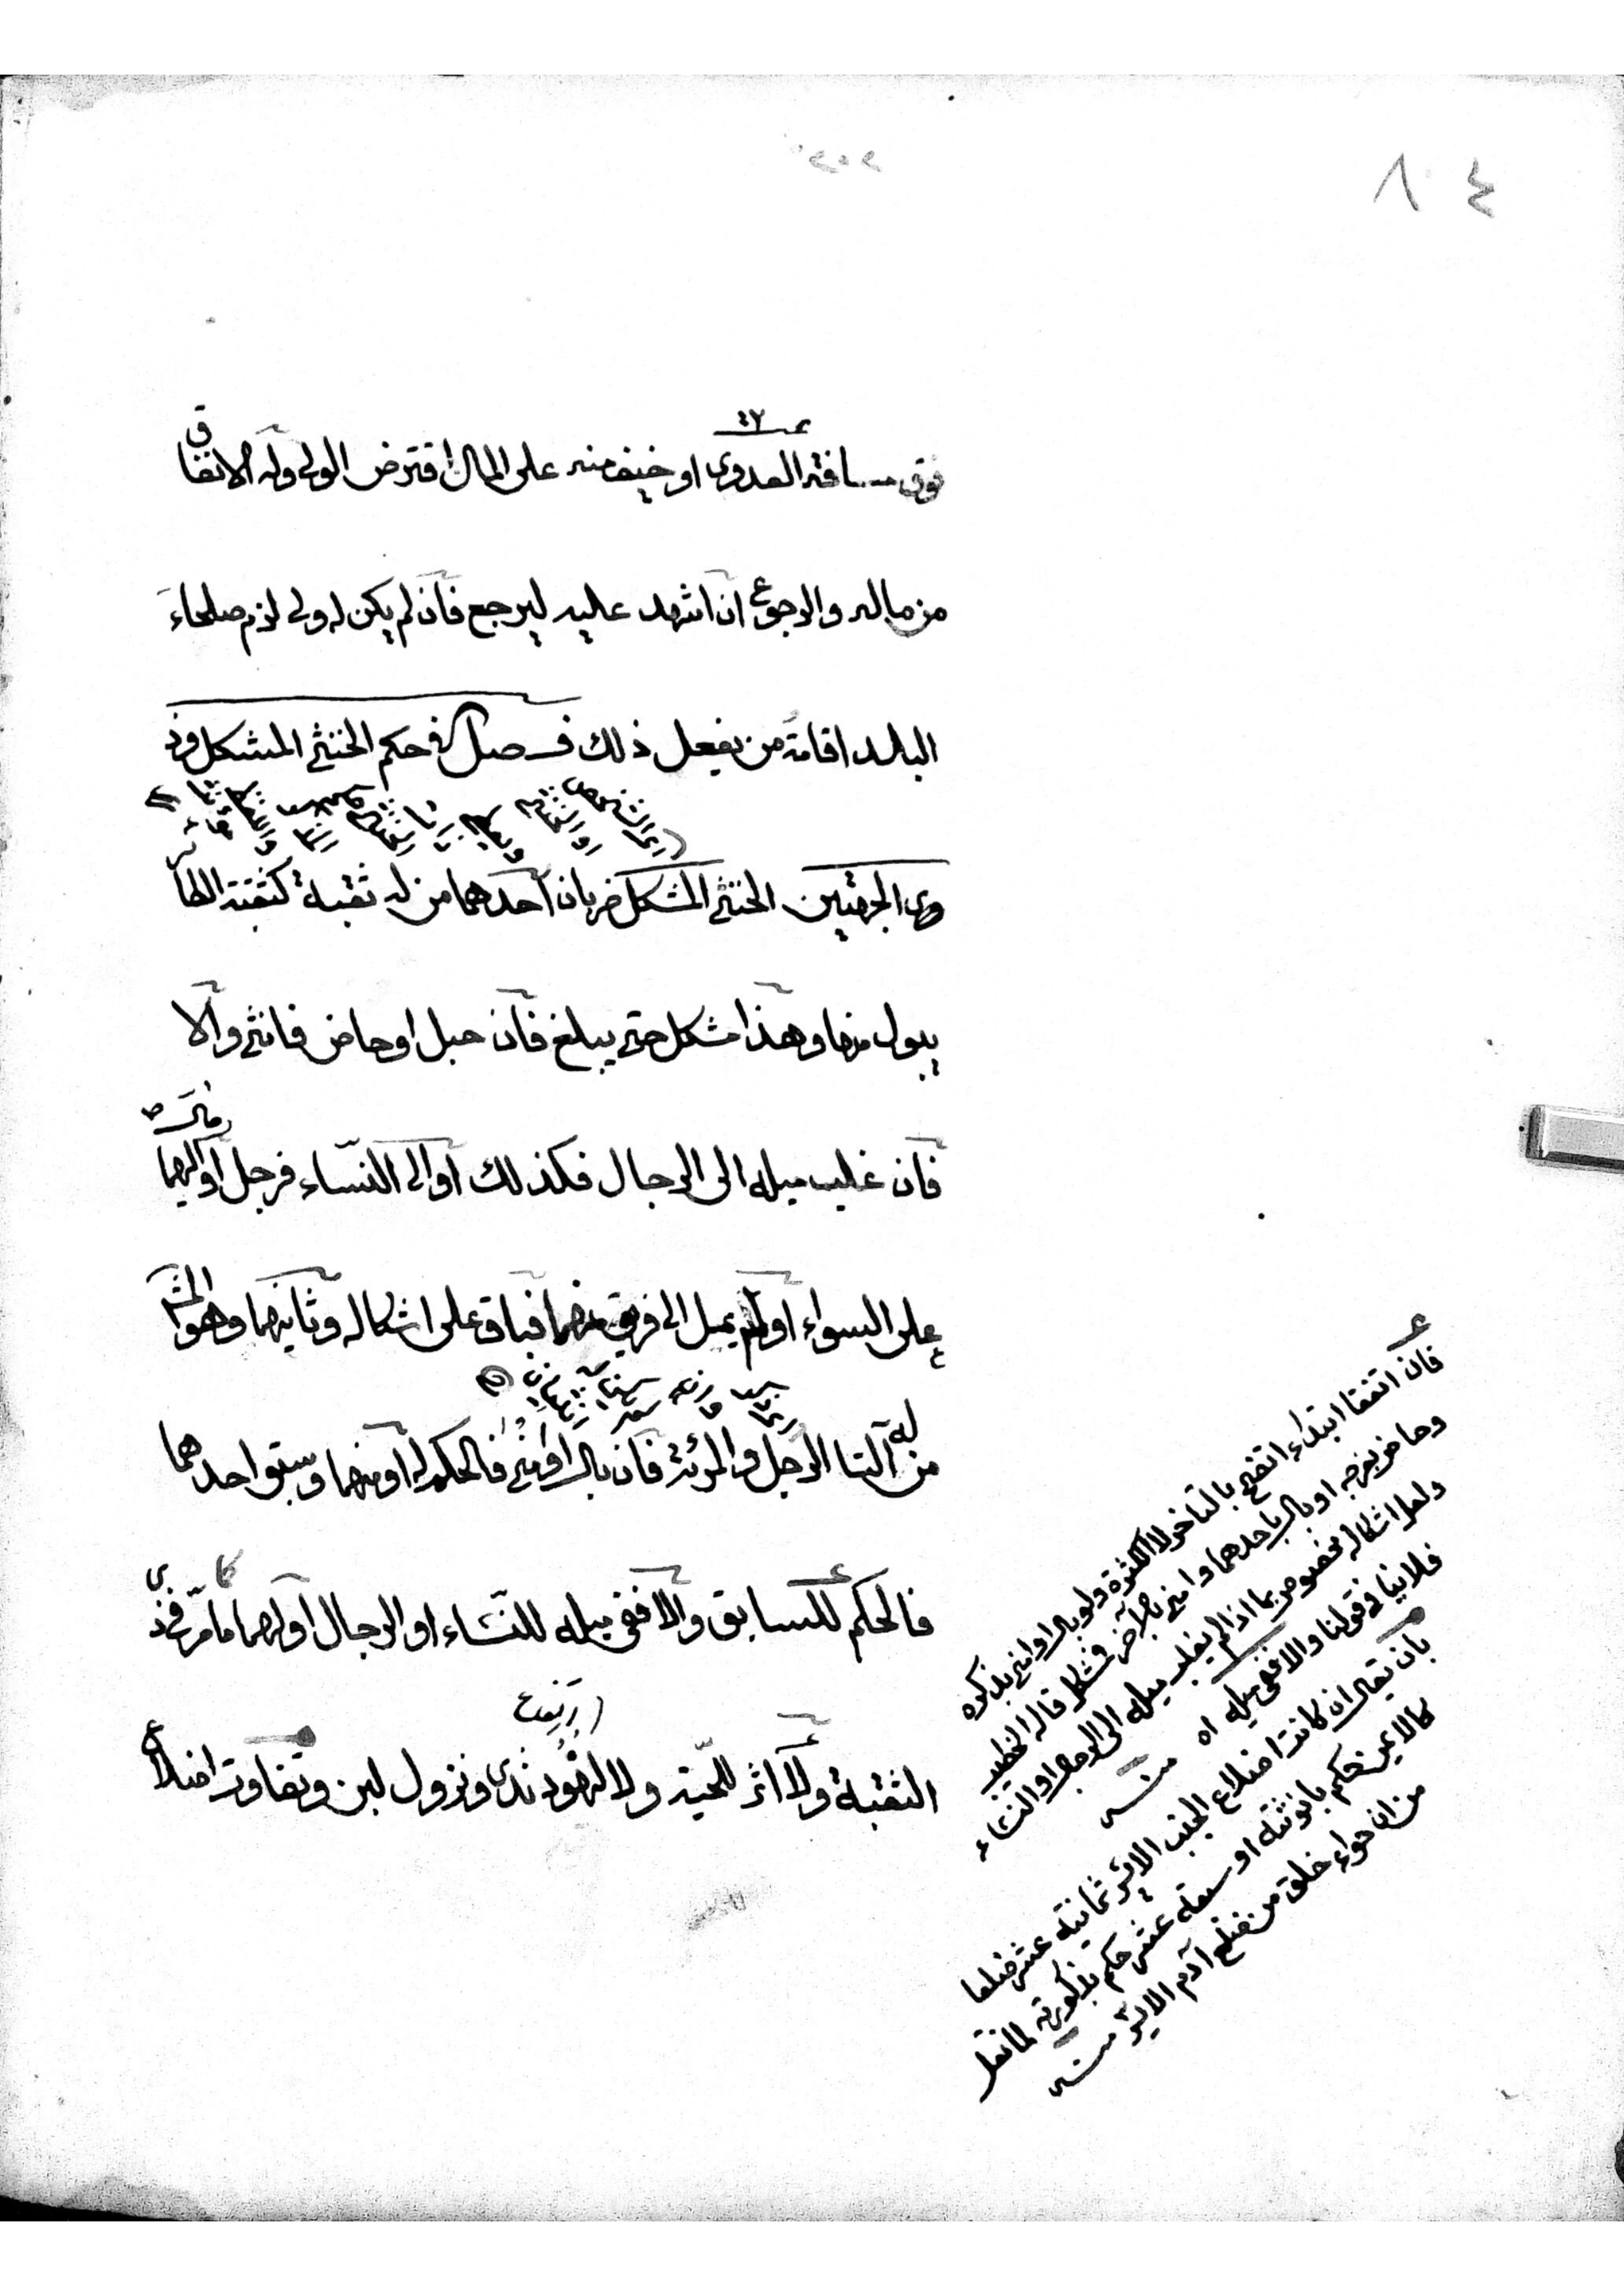 ٨٠٤
فوق مسافة العدوى او خيف منه على المال اقترض الولى وله الانفاق
من ماله والرجوع ان اشهد عليه ليرجع فان لم يكن له ولى لزم صلحاء
البلد اقامة من يفعل ذلك فصل فى حكم الخنثى المشكل وذ
وى الجهتين الخنثى المشكل ضربان احدهما من له ثقبة كثقبة الطا
يبول منها وهذا مشكل حتى يبلغ فان حبل او حاض فانثى والا
فان غلب ميله الى الرجال فكذلك او الى النساء فرجل او اليهما
على السواء او لم يمل الى فريق منهما فباق على اشكاله وثانيهما وهو المشا
من له آلتا الرجل والمرئة فان بال او منى فالحكم له او منهما وسبق احدهما
فالحكم للسابق والا ففى ميله للنساء او الرجال او لهما ما مر فى ذى
الثقبة ولا اثر للحية ولا لنهود ثدى ونزول لبن وتفاوت اضلاع
فان اتفقا ابتداء اتضح بالتاخر لا الكثرة ولو بال او امنى بذكره
وحاض بفرجه او بال باحدهما وامنى فمشكل قاله الخطيب
ولعل اشكاله مخصوص بما اذا لم يغلب ميله الى الرجال او النساء
فلا ينافى قولنا والا ففى ميله اه
بان كانت اضلاع الجنب الايسر ثمانية عشر ضلعا
كالايمن حكم بانوثته او سبعة عشر حكم بذكورته لما نقل
من ان حواء خلق من ضلع آدم الايسر